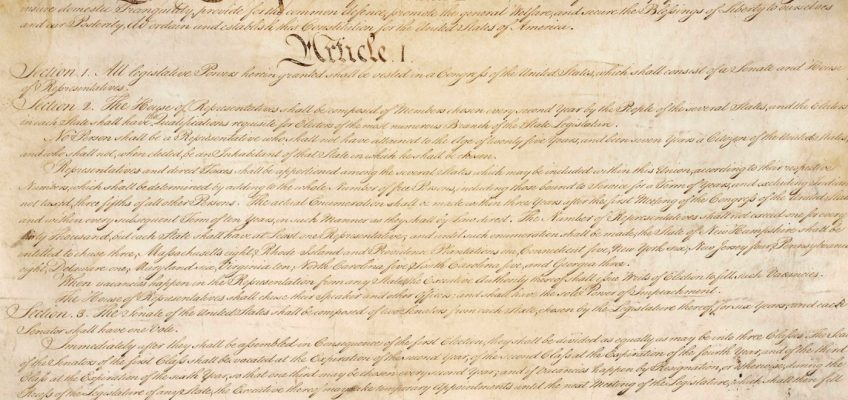 insure domestic Tranquility, provide for the common defence, promote the general Welfare, and secure the Blessings of Liberty to ourselves
and our Posterity, do ordain and establish this Constitution for the United States of America.
Article. I.
Section. 1. All legislative Powers herein granted shall be vested in a Congress of the United States, which shall consist of a Senate and House
of Representatives.
Section. 2. The House of Representatives shall be composed of Members chosen every second Year by the People of the several States, and the Electors
in each State shall have the Qualifications requisite for Electors of the most numerous Branch of the State Legislature.
No Person shall be a Representative who shall not have attained to the Age of twenty five Years, and been seven Years a Citizen of the United States,
and who shall not, when elected, be an Inhabitant of that State in which he shall be chosen.
Representatives and direct Taxes shall be apportioned among the several States which may be included within this Union, according to their respective
Numbers, which shall be determined by adding to the whole Number of free Persons, including those bound to Service for a Term of Years, and excluding Indians
not taxed, three fifths of all other Persons. The actual Enumeration shall be made within three Years after the first Meeting of the Congress of the United States,
and within every subsequent Term of ten Years, in such Manner as they shall by Law direct. The Number of Representatives shall not exceed one for every
thirty Thousand, but each State shall have at Least one Representative; and until such enumeration shall be made, the State of New Hampshire shall be
entitled to chuse three, Massachusetts eight, Rhode Island and Providence Plantations one, Connecticut five, New York six, New Jersey four, Pennsylvania
eight, Delaware one, Maryland six, Virginia ten, North Carolina five, South Carolina five, and Georgia three.
When vacancies happen in the Representation from any State, the Executive Authority thereof shall issue Writs of Election to fill such Vacancies.
The House of Representatives shall chuse their Speaker and other Officers; and shall have the sole Power of Impeachment.
Section. 3. The Senate of the United States shall be composed of two Senators from each State, chosen by the Legislature thereof, for six Years; and each
Senator shall have one Vote.
Immediately after they shall be assembled in Consequence of the first Election, they shall be divided as equally as may be into three Classes. The Seats
of the Senators of the first Class shall be vacated at the Expiration of the second Year, of the second Class at the Expiration of the fourth Year, and of the third
Class at the Expiration of the sixth Year, so that one third may be chosen every second Year; and if Vacancies happen by Resignation, or otherwise, during the
Recess of the Legislature of any State, the Executive thereof may make temporary Appointments until the next Meeting of the Legislature, which shall then fill